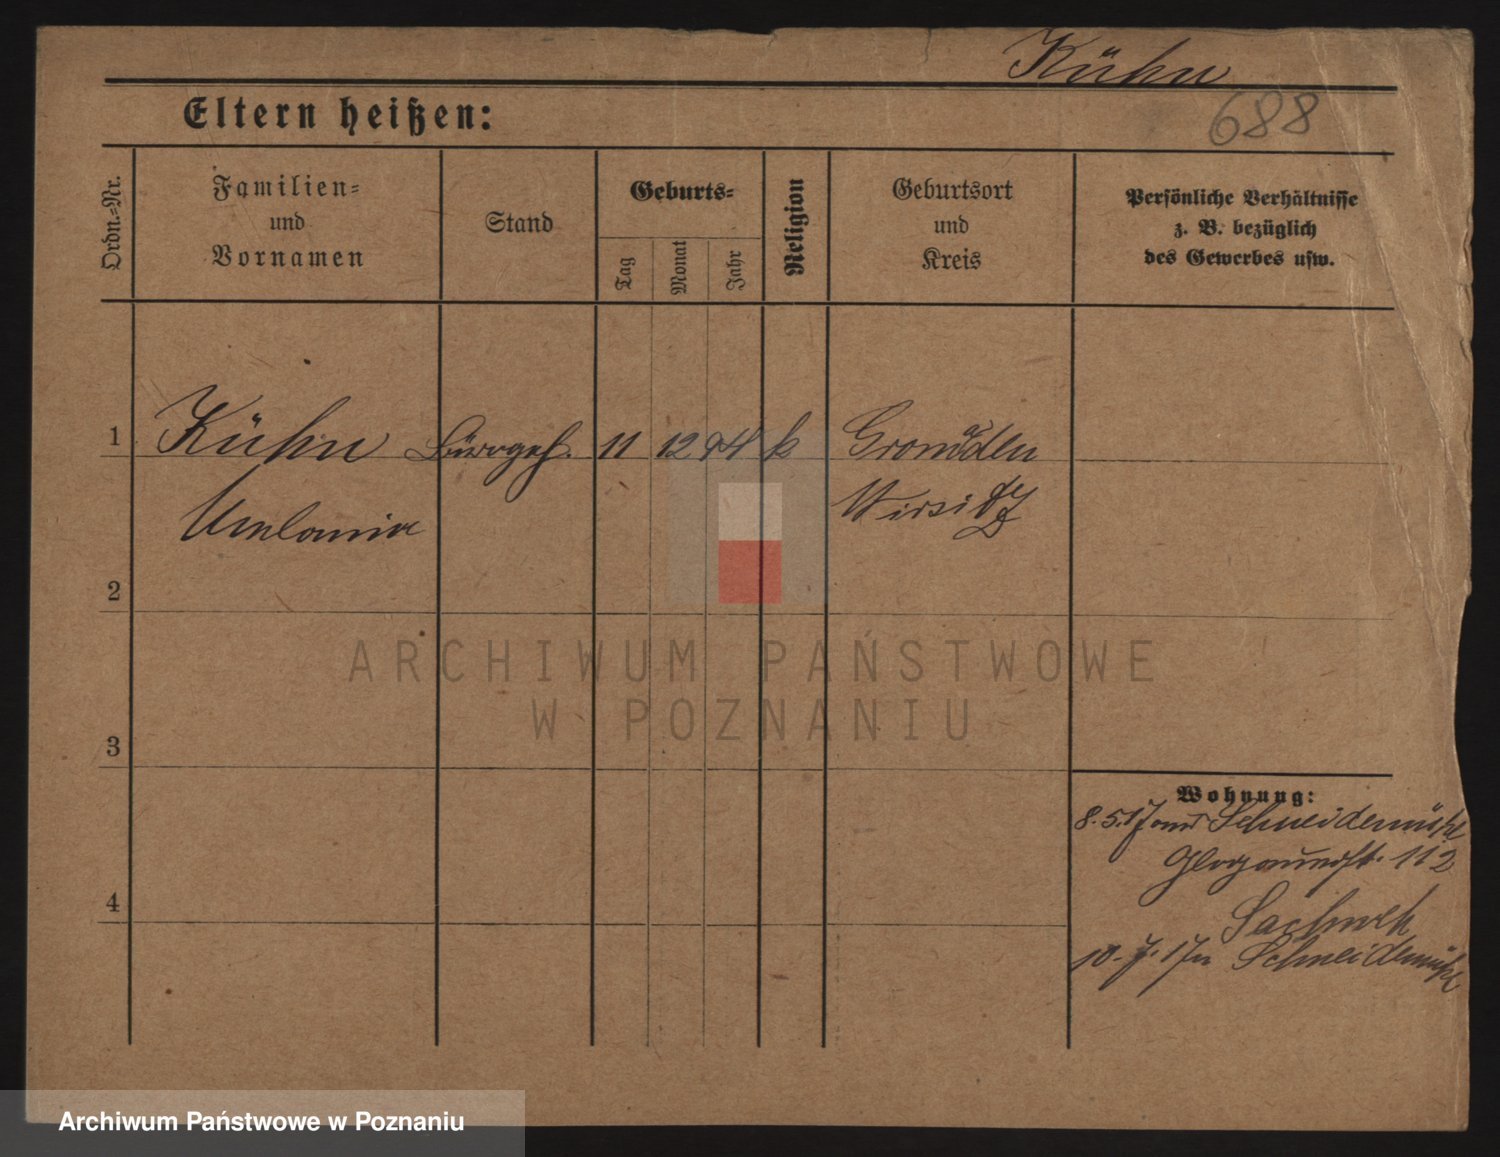 Kühn
688
Eltern heißen:
Ordn.-Nr.
Familien-
und
Vornamen
Stand
Geburts-
Tag
Monat
Jahr
Religion
Geburtsort
und
Kreis
Persönliche Verhältnisse
z. B. bezüglich
des Gewerbes usw.
1 Kühn Bürogeh. 11 12 94 k Gromaden
Wirsitz
2
3
4
Wohnung:
8.5.17 Schneidemühl
112
10.7.17 Schneidemühl
ARCHIWUM PAŃSTWOWE
W POZNANIU
Archiwum Państwowe w Poznaniu